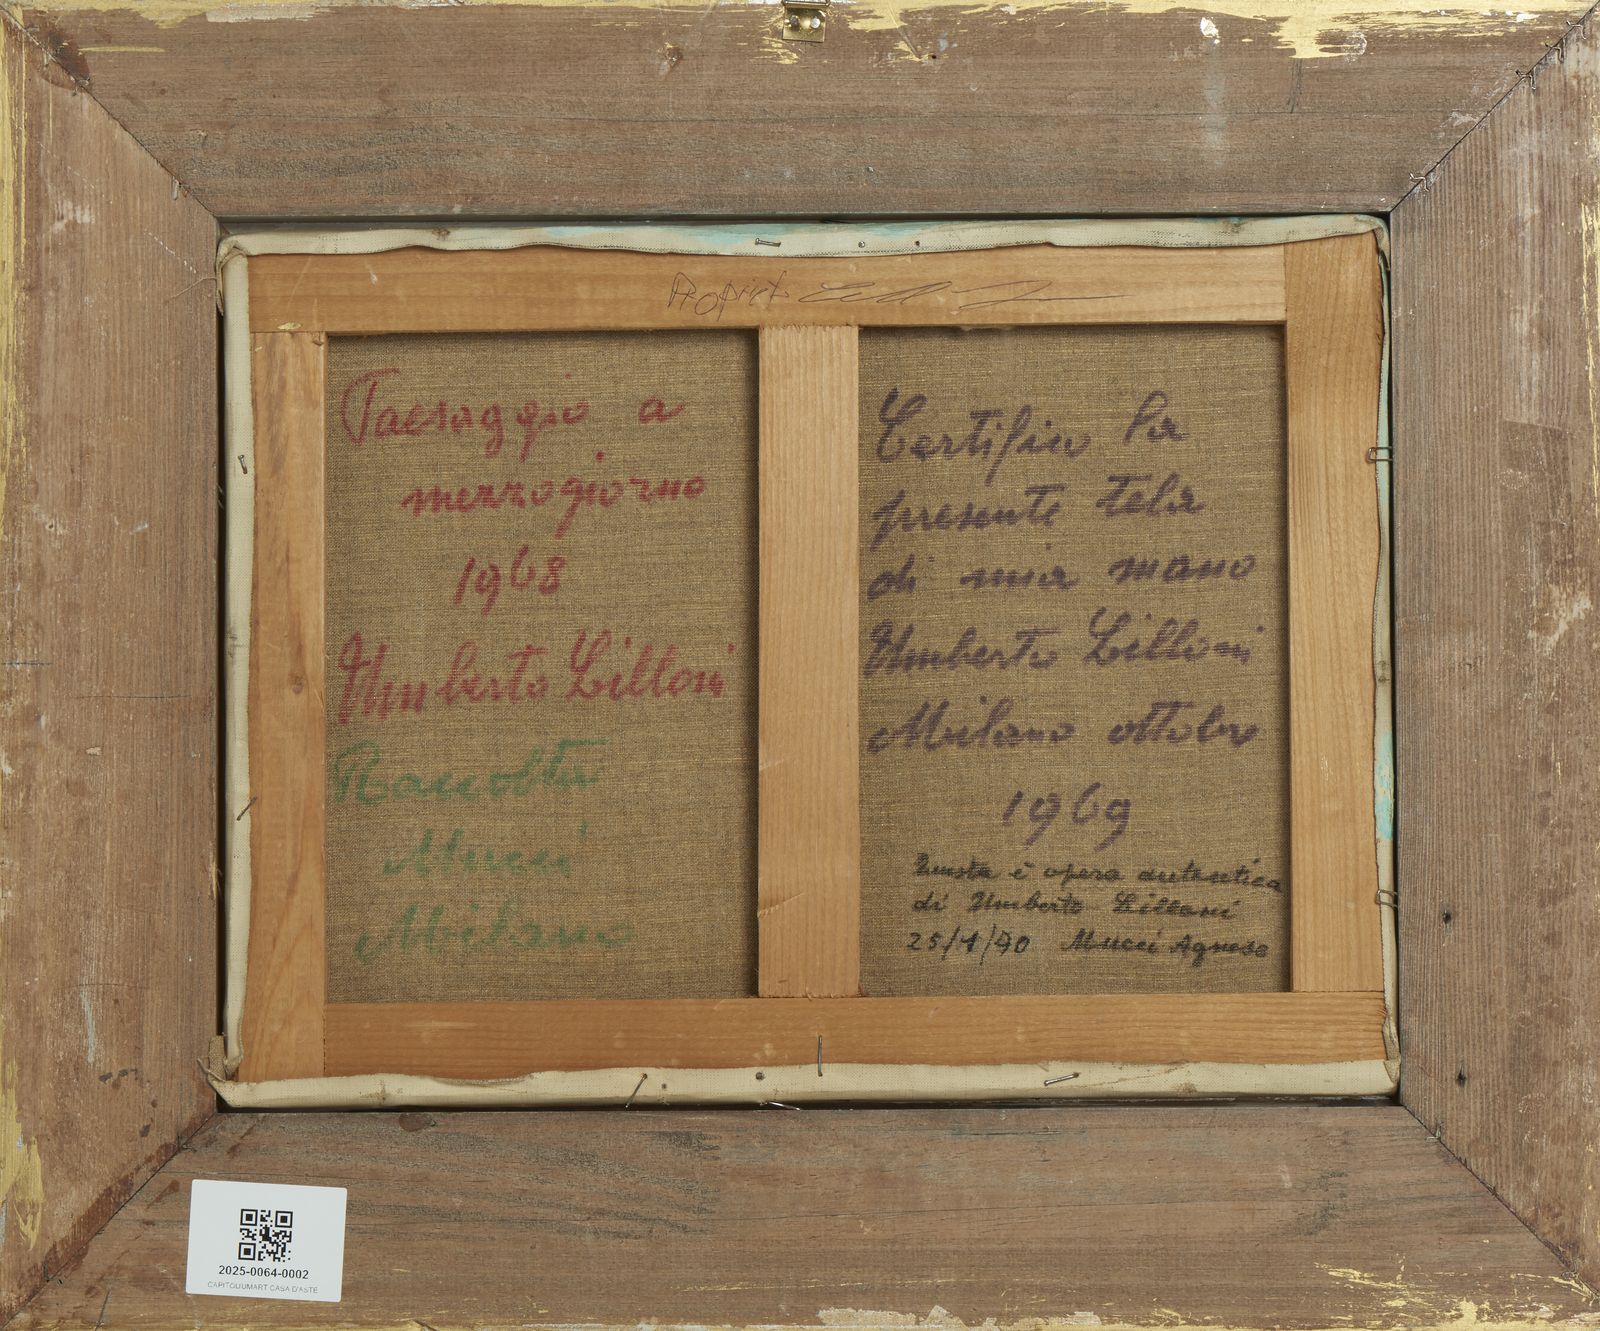 Propriet
Paesaggio a
mezzogiorno
1968
Umberto Lilloni
Raccolta
Mucci
Milano
Certifico la
presente tela
di mia mano
Umberto Lilloni
Milano ottobre
1969
Questa è opera autentica
di Umberto Lilloni
25/1/90 Mucci Agnese
2025-0064-0002
CAPITOLIUMART CASA D'ASTE